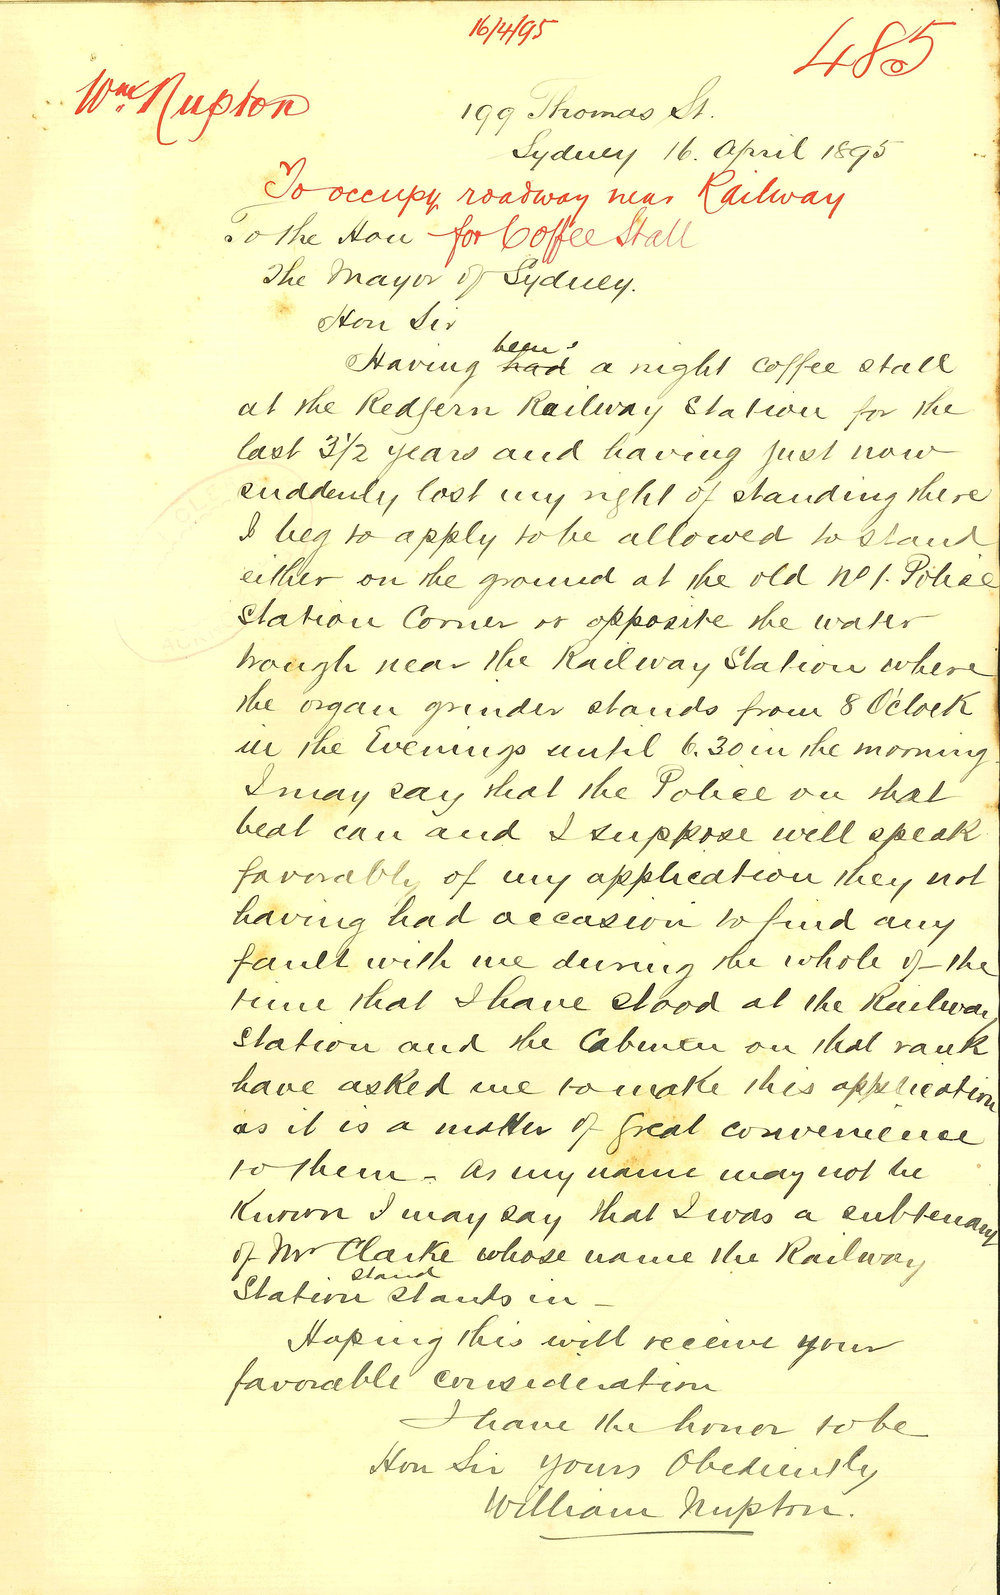 16/4/95
485
Wm Nupton
199 Thomas St.
Sydney 16. April 1895
To occupy roadway near Railway
for Coffee Stall
To the Hon
The Mayor of Sydney.
Hon Sir
Having had been a night coffee stall
at the Redfern Railway Station for the
last 3 1/2 years and having just now
suddenly lost my right of standing there
I beg to apply to be allowed to stand
either on the ground at the old No 1. Police
Station Corner or opposite the water
trough near the Railway Station where
the organ grinder stands from 8 O'Clock
in the Evenings until 6.30 in the morning.
I may say that the Police on that
beat can and I suppose will speak
favorably of my application they not
having had occasion to find any
fault with me during the whole of the
time that I have stood at the Railway
Station and the Cabmen on that rank
have asked me to make this application
as it is a matter of great convenience
to them - As my name may not be
known I may say that I was a subtenant
of Mr Clarke whose name the Railway
Station stand stands in -
Hoping this will receive your
favorable consideration
I have the honor to be
Hon Sir Yours Obediently
William Nupton.